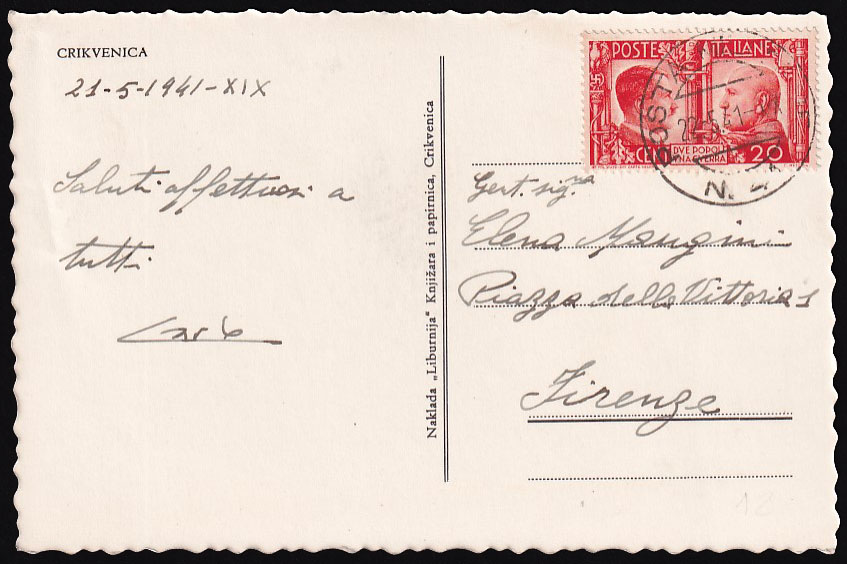 CRIKVENICA
21-5-1941-XIX
Saluti affettuosi a
tutti
Naklada „Liburnija" Knjižara i papirnica, Crikvenica
POSTE ITALIANE
DVE POPOLI
VNA GVERRA
20
POST
22.5.41
N.
Gent. sig.na
Elena Mangini
Piazza della Vittoria 1
Firenze
12